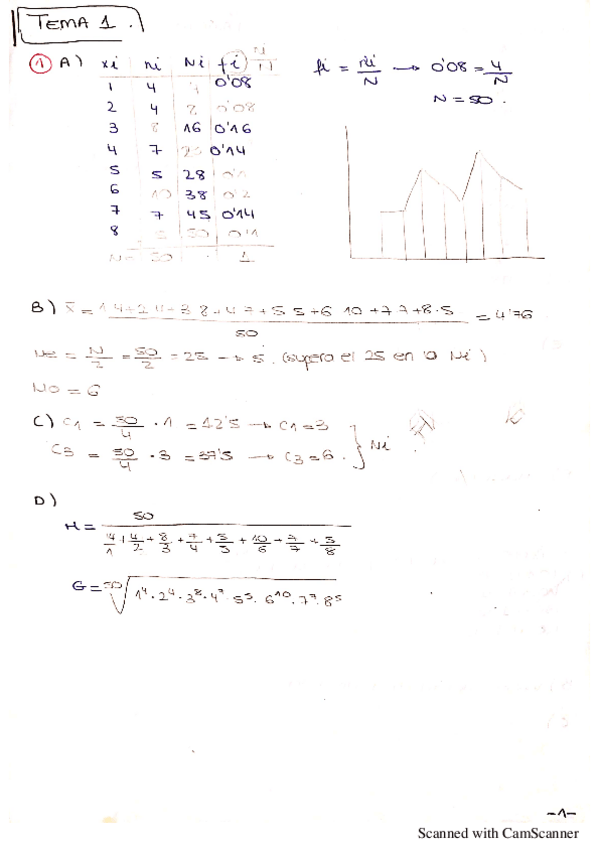 TEMA 1.
1 A) xi ni Ni fi
fi = ni/N → 0'08 = 4/N
N = 50.
1 4 0'08
2 4 8 0'08
3 8 16 0'16
4 7 23 0'14
5 5 28 0'1
6 10 38 0'2
7 7 45 0'14
8 5 50 0'1
N= 50 1
B) x̄ = 1·4+2·4+3·8+4·7+5·5+6·10+7·7+8·5 / 50 = 4'76
Me = N/2 = 50/2 = 25 → 5. (supera el 25 en la Ni)
Mo = 6
C) C1 = 50/4 · 1 = 12'5 → C1 = 3
C3 = 50/4 · 3 = 37'5 → C3 = 6. } Ni
D)
H = 50 / 4/1 + 4/2 + 8/3 + 7/4 + 5/5 + 10/6 + 7/7 + 5/8
G = ⁵⁰√1⁴·2⁴·3⁸·4⁷·5⁵·6¹⁰·7⁷·8⁵
-1-
Scanned with CamScanner